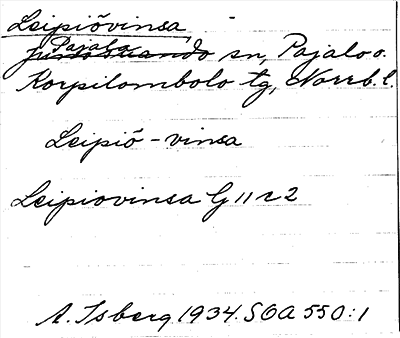 Leipiövinsa
Pajala
Junosuando sn, Pajala o.
Korpilombolo tg, Norrb. l.
Leipiö-vinsa
Leipiovinsa G 11 r 2
A. Isberg 1934. SOA 550:1